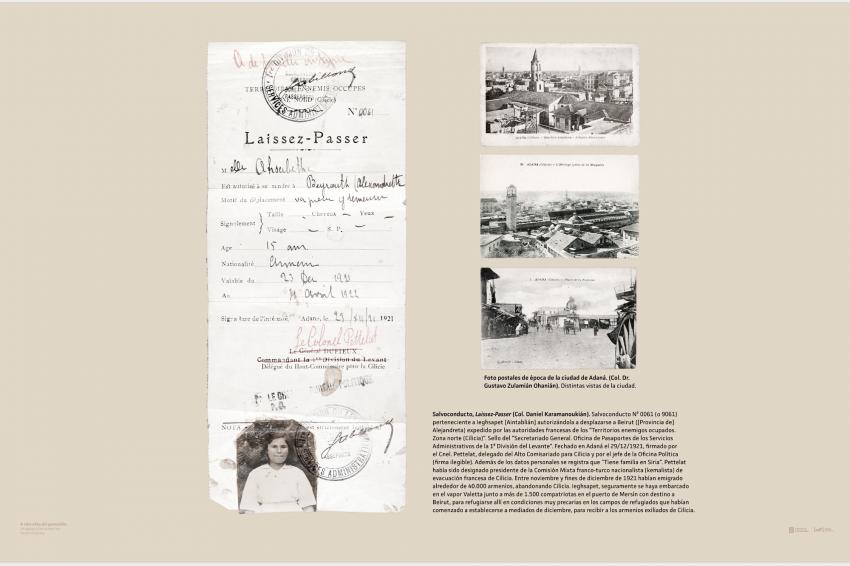 TERRITOIRES ENNEMIS OCCUPÉS
ZONE NORD (Cilicie)
SERVICES ADMINISTRATIFS
N° 0061
Laissez-Passer
M elle
Est autorisé à se rendre à Beyrouth (Alexandrette
Motif du déplacement
Signalement
Taille Cheveux Yeux
Visage S. P.
Age 15 ans
Nationalité
Valable du 23 Dec 1921
Au avril 1922
Signature de l'intéressé, Adana, le 1921
Le Colonel Pettelat
Le Général DUFIEUX
Commandant la 1re Division du Levant
Délégué du Haut-Commissaire pour la Cilicie
NOTA
SERVICES ADMINISTRATIFS
Foto postales de época de la ciudad de Adaná. (Col. Dr.
Gustavo Zulamián Ohanián). Distintas vistas de la ciudad.
Salvoconducto, Laissez-Passer (Col. Daniel Karamanoukián). Salvoconducto Nº 0061 (o 9061)
perteneciente a Ieghsapet (Aintablián) autorizándola a desplazarse a Beirut ([Provincia de]
Alejandreta) expedido por las autoridades francesas de los "Territorios enemigos ocupados.
Zona norte (Cilicia)". Sello del "Secretariado General. Oficina de Pasaportes de los Servicios
Administrativos de la 1ª División del Levante". Fechado en Adaná el 29/12/1921, firmado por
el Cnel. Pettelat, delegado del Alto Comisariado para Cilicia y por el jefe de la Oficina Política
(firma ilegible). Además de los datos personales se registra que "Tiene familia en Siria". Pettelat
había sido designado presidente de la Comisión Mixta franco-turco nacionalista (kemalista) de
evacuación francesa de Cilicia. Entre noviembre y fines de diciembre de 1921 habían emigrado
alrededor de 40.000 armenios, abandonando Cilicia. Ieghsapet, seguramente se haya embarcado
en el vapor Valetta junto a más de 1.500 compatriotas en el puerto de Mersin con destino a
Beirut, para refugiarse allí en condiciones muy precarias en los campos de refugiados que habían
comenzado a establecerse a mediados de diciembre, para recibir a los armenios exiliados de Cilicia.